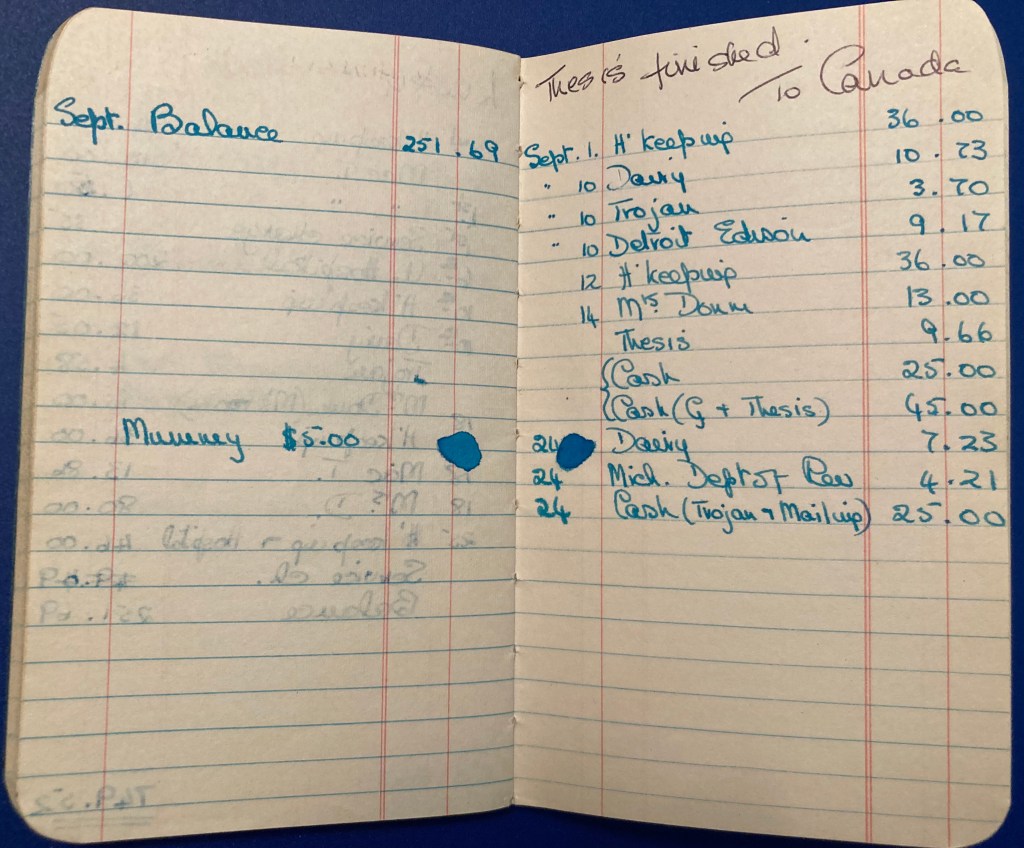 Sept. Balance 251.69
Mummey $5.00
Thesis finished.
To Canada
Sept. 1. H'keeping 36.00
" 10 Dairy 10.23
" 10 Trojan 3.70
" 10 Detroit Edison 9.17
12 H'keeping 36.00
14 Mrs. Donm 13.00
Thesis 9.66
Cash 25.00
Cash (G + Thesis) 45.00
24 Dairy 7.23
24 Mich. Dept of Rev 4.21
24 Cash (Trojan + Mailing) 25.00